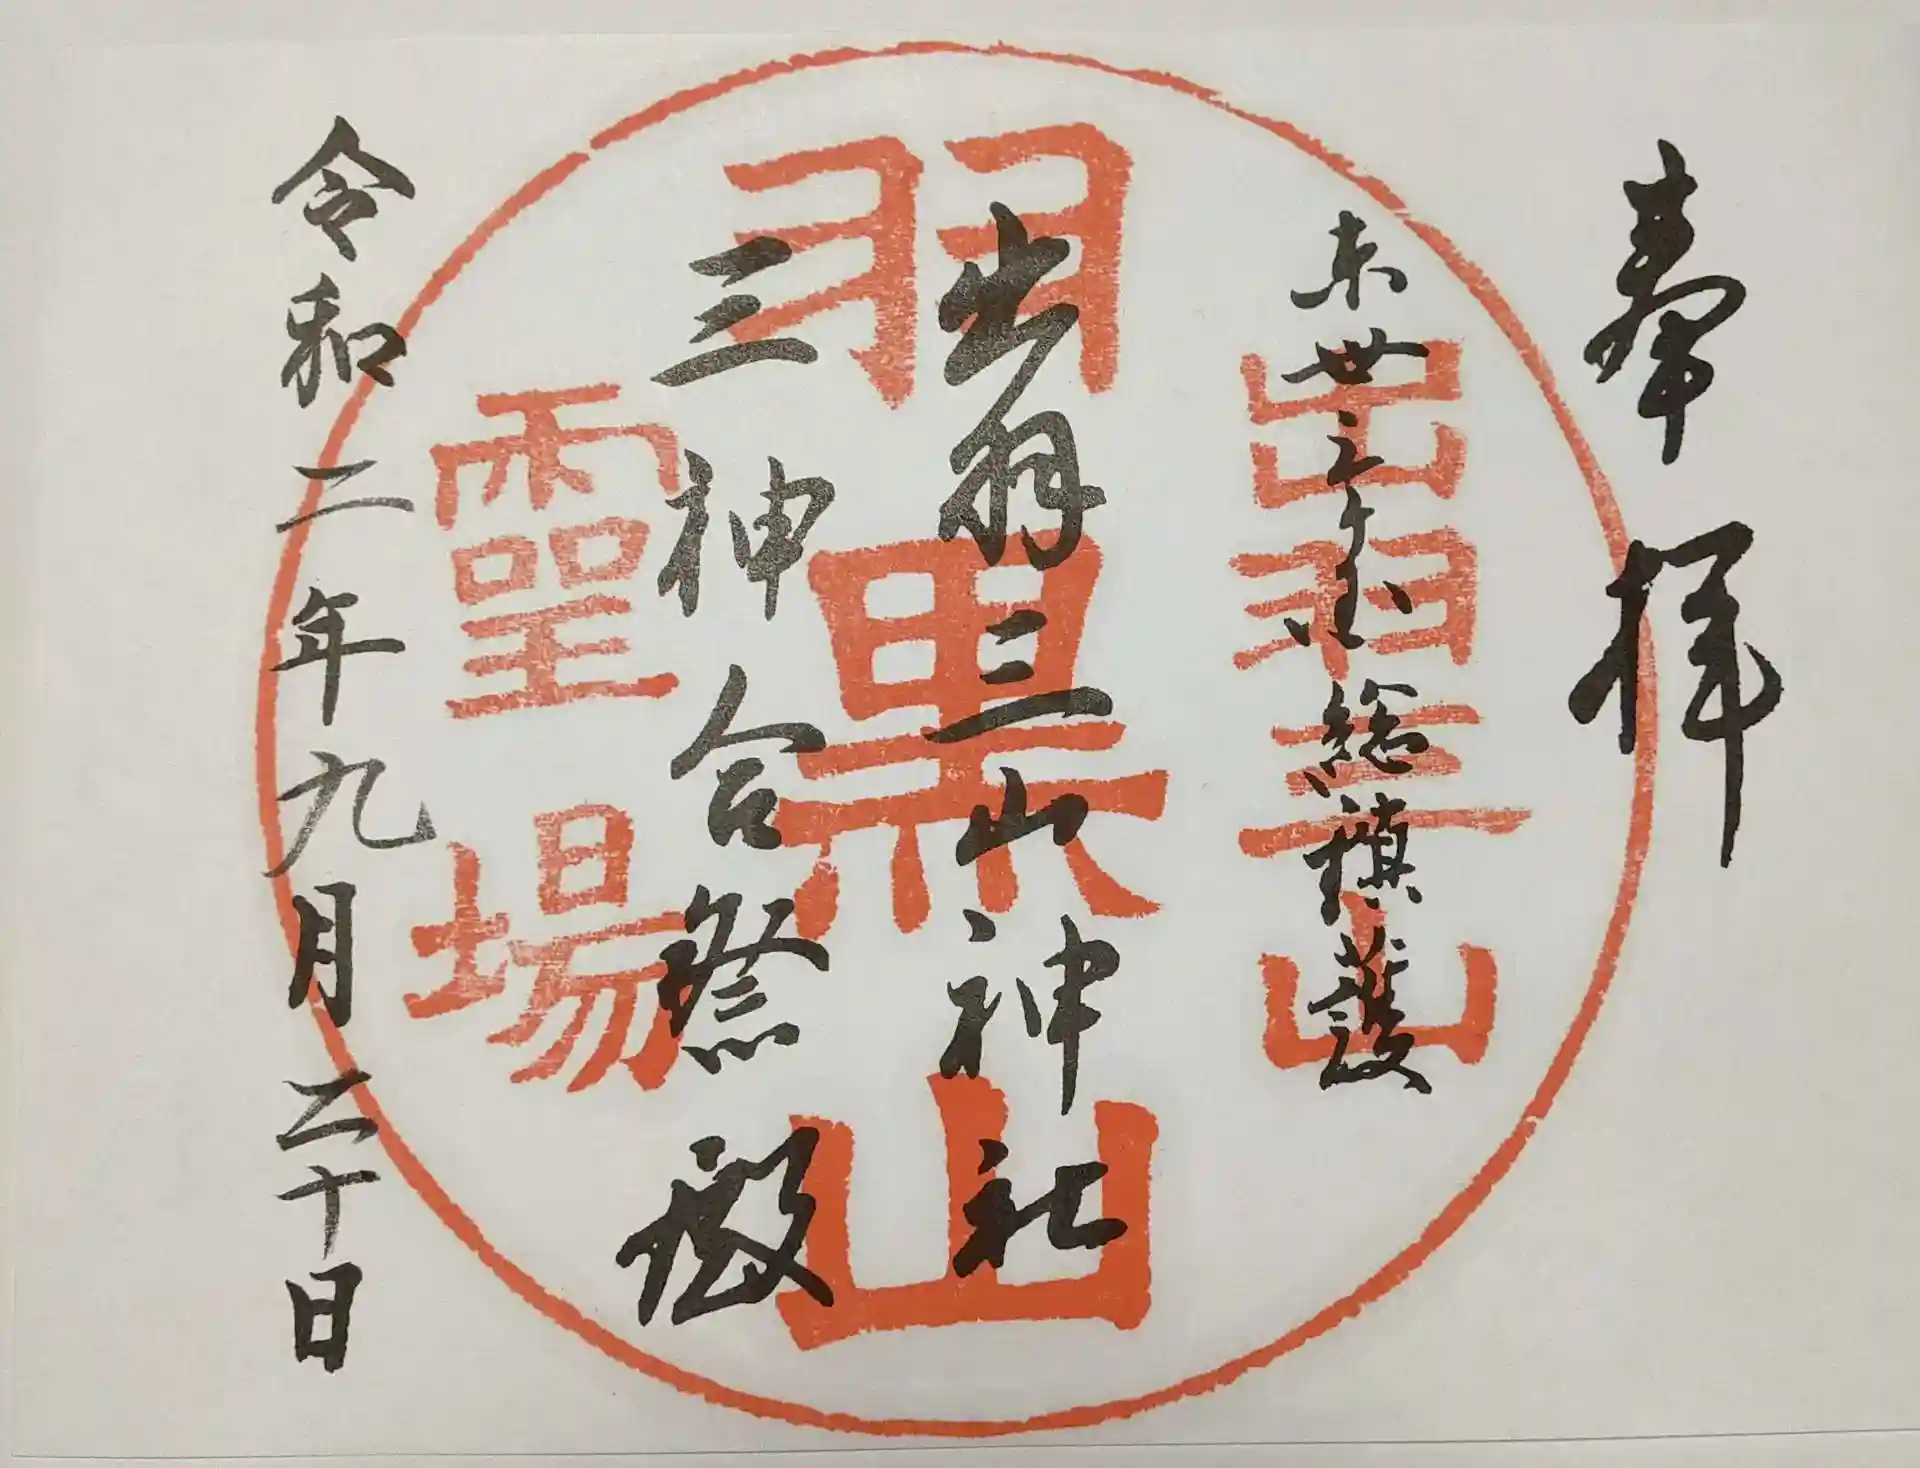 奉拝
東卅三ケ国総鎮護
出羽三山神社
三神合祭殿
令和二年九月二十日
出羽三山
羽黒山
霊場